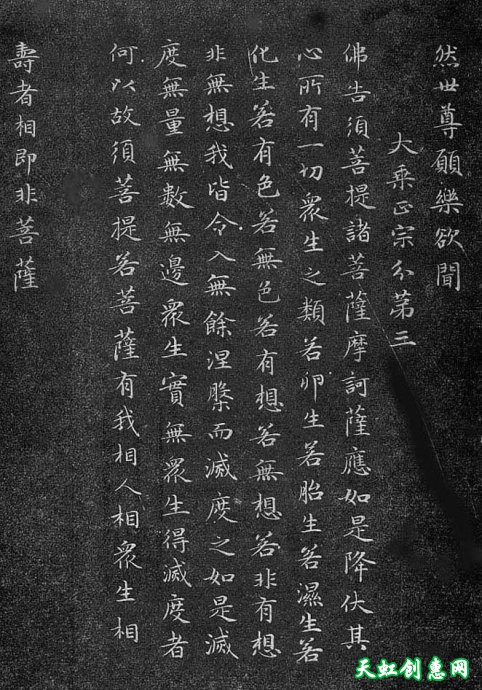 然世尊願樂欲聞
大乘正宗分第三
佛告須菩提諸菩薩摩訶薩應如是降伏其
心所有一切衆生之類若卵生若胎生若濕生若
化生若有色若無色若有想若無想若非有想
非無想我皆令入無餘涅槃而滅度之如是滅
度無量無數無邊衆生實無衆生得滅度者
何以故須菩提若菩薩有我相人相衆生相
壽者相即非菩薩
天虹创意网